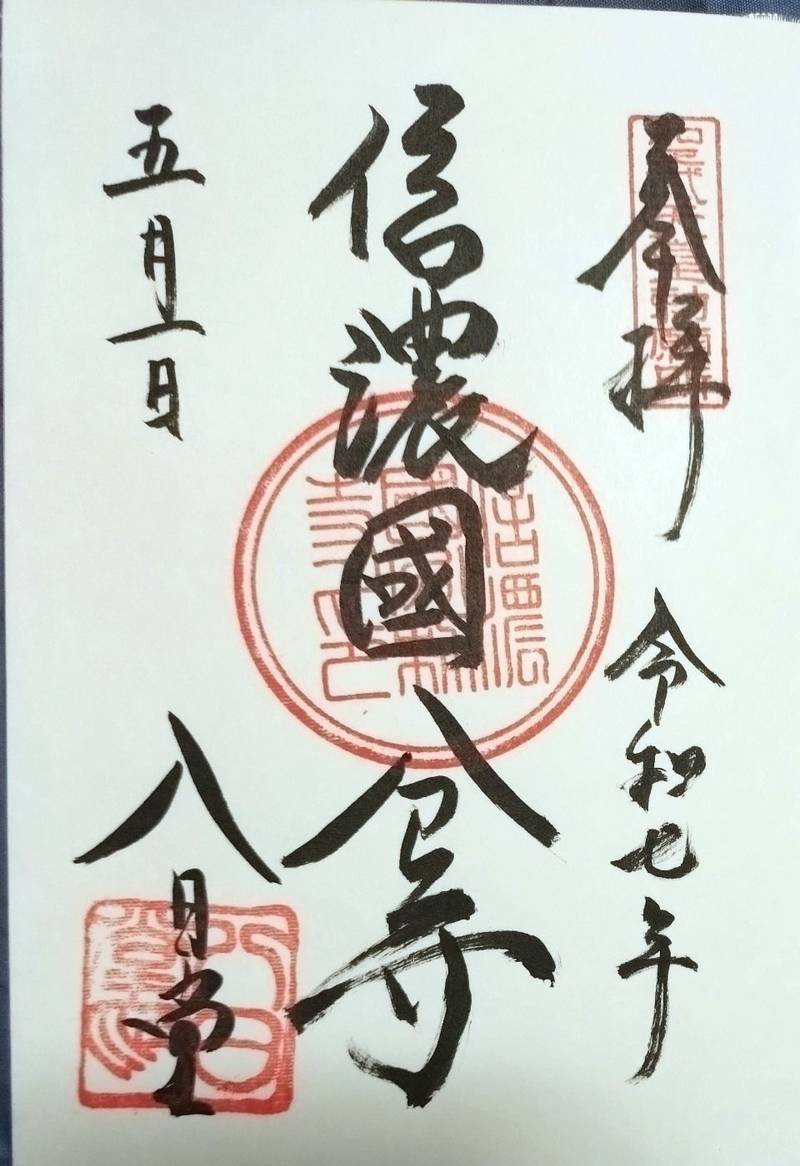 奉拝 令和七年
信濃國分寺
五月一日
八日堂